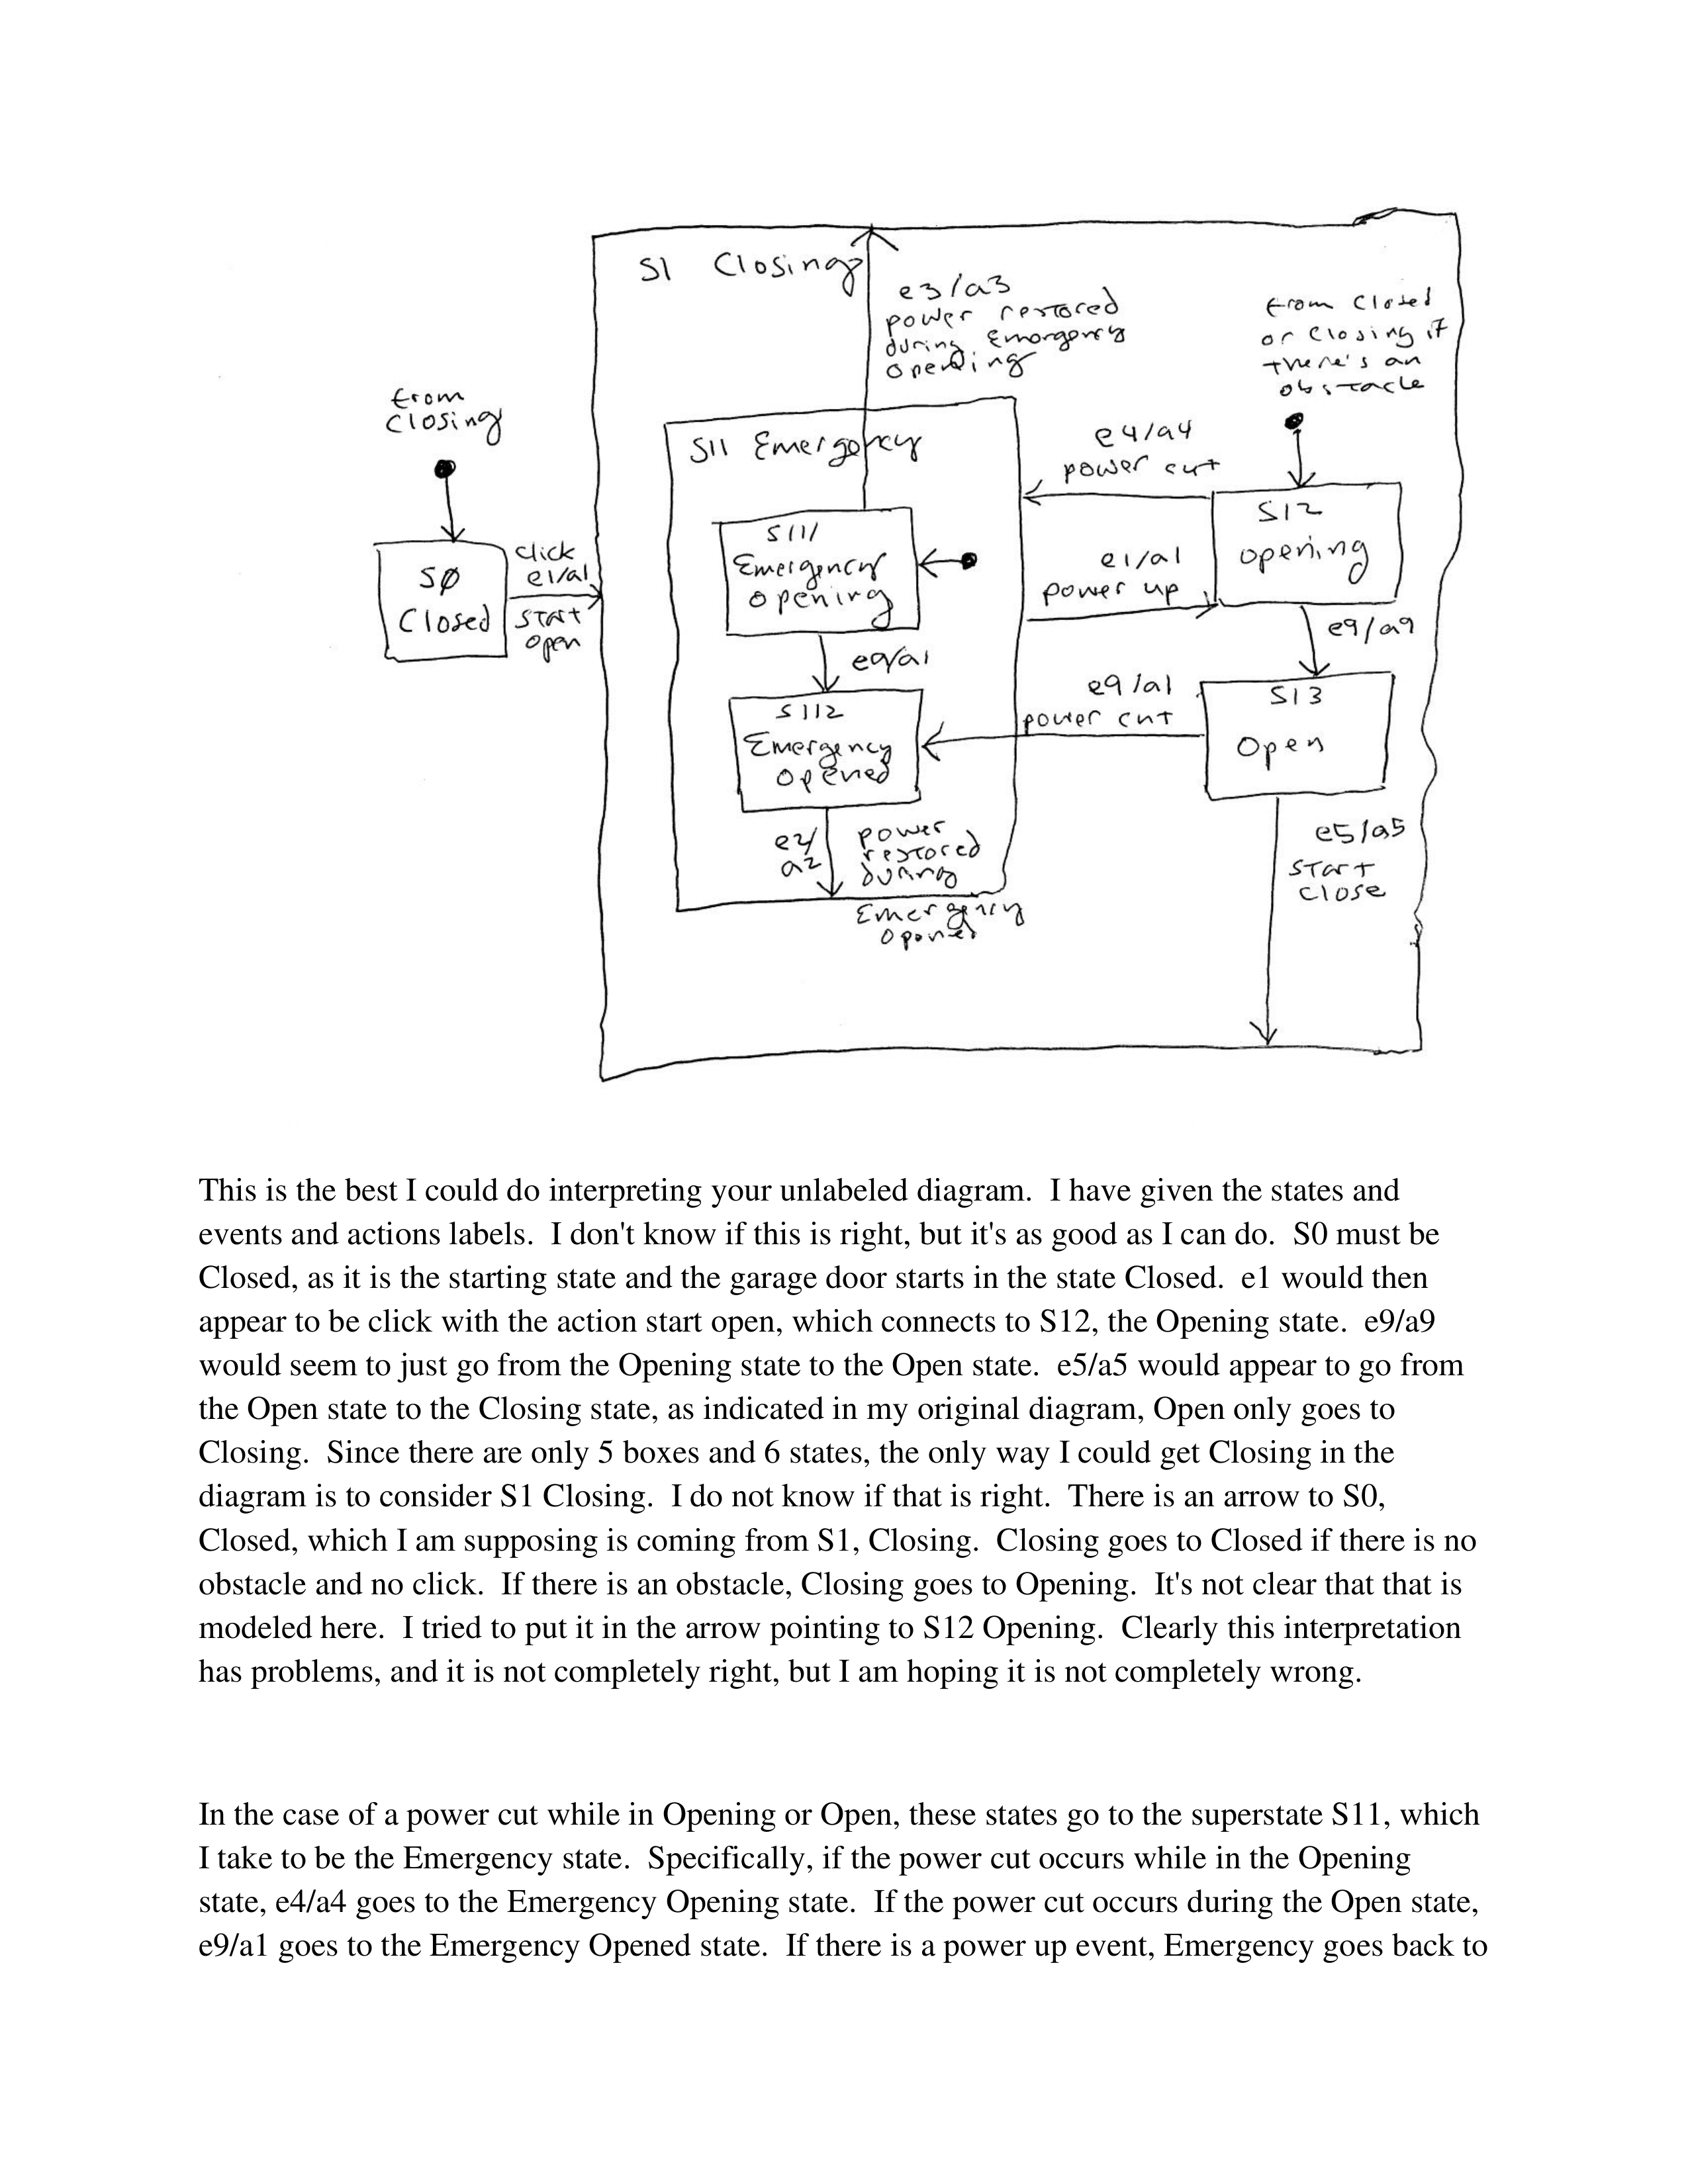 S1 Closing
e3/a3
power restored
during Emergency
Opening
from Closed
or Closing if
there's an
obstacle
from
Closing
S11 Emergency
e4/a4
power cut
S12
opening
S111
Emergency
opening
e1/a1
power up
click
e1/a1
start
open
S0
Closed
e9/a1
e9/a9
S112
Emergency
opened
e9/a1
power cut
S13
Open
e2/
a2
power
restored
during
Emergency
e5/a5
start
close
This is the best I could do interpreting your unlabeled diagram. I have given the states and
events and actions labels. I don't know if this is right, but it's as good as I can do. S0 must be
Closed, as it is the starting state and the garage door starts in the state Closed. e1 would then
appear to be click with the action start open, which connects to S12, the Opening state. e9/a9
would seem to just go from the Opening state to the Open state. e5/a5 would appear to go from
the Open state to the Closing state, as indicated in my original diagram, Open only goes to
Closing. Since there are only 5 boxes and 6 states, the only way I could get Closing in the
diagram is to consider S1 Closing. I do not know if that is right. There is an arrow to S0,
Closed, which I am supposing is coming from S1, Closing. Closing goes to Closed if there is no
obstacle and no click. If there is an obstacle, Closing goes to Opening. It's not clear that that is
modeled here. I tried to put it in the arrow pointing to S12 Opening. Clearly this interpretation
has problems, and it is not completely right, but I am hoping it is not completely wrong.
In the case of a power cut while in Opening or Open, these states go to the superstate S11, which
I take to be the Emergency state. Specifically, if the power cut occurs while in the Opening
state, e4/a4 goes to the Emergency Opening state. If the power cut occurs during the Open state,
e9/a1 goes to the Emergency Opened state. If there is a power up event, Emergency goes back to